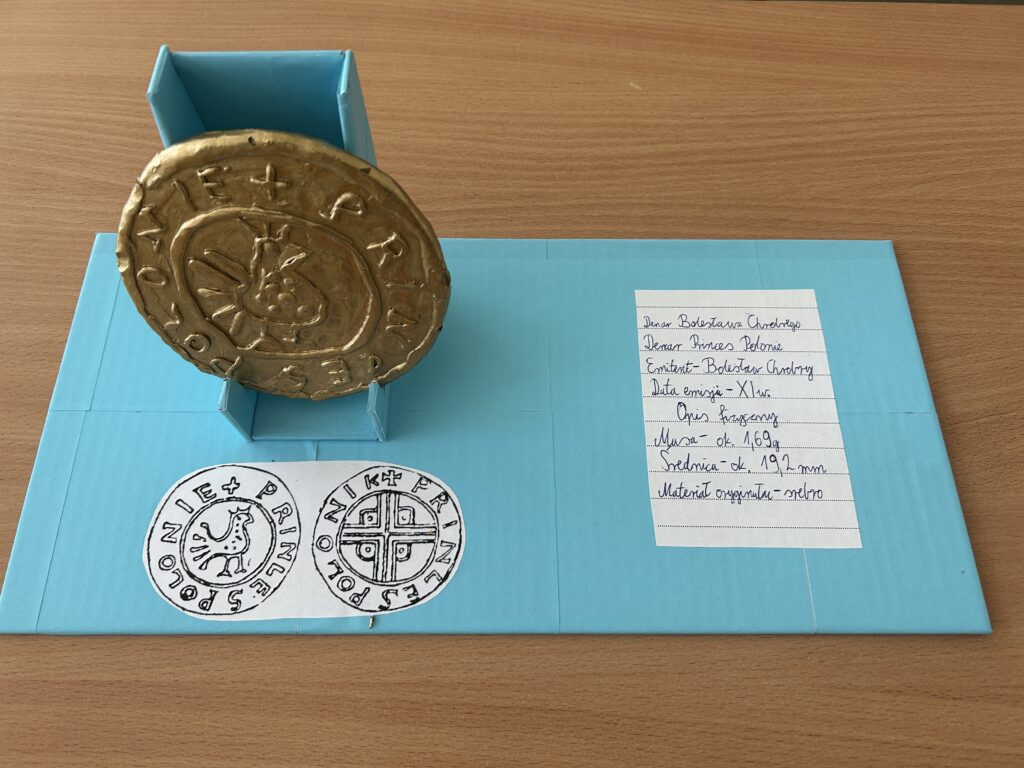 PRINCES POLONIE +
PRINCES POLONIE +
PRINCES POLONIK +
Denar Bolesława Chrobrego
Denar Princes Polonie
Emitent - Bolesław Chrobry
Data emisji - XI w.
Opis fizyczny
Masa - ok. 1,69g
Średnica - ok. 19,2 mm
Materiał oryginału - srebro